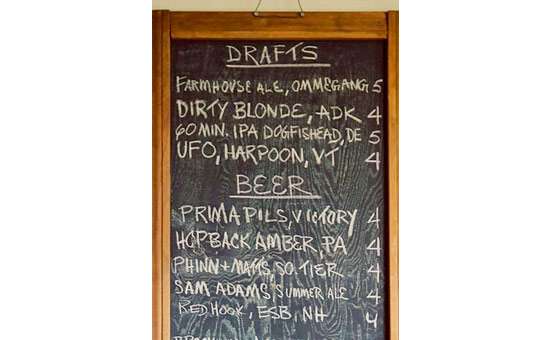 DRAFTS
FARMHOUSE ALE, OMMEGANG 5
DIRTY BLONDE, ADK 4
60 MIN. IPA DOGFISHEAD, DE 5
UFO, HARPOON, VT 4
BEER
PRIMA PILS, VICTORY 4
HOPBACK AMBER, PA 4
PHINN + MATTS, SO. TIER 4
SAM ADAMS, SUMMER ALE 4
RED HOOK, ESB, NH 4